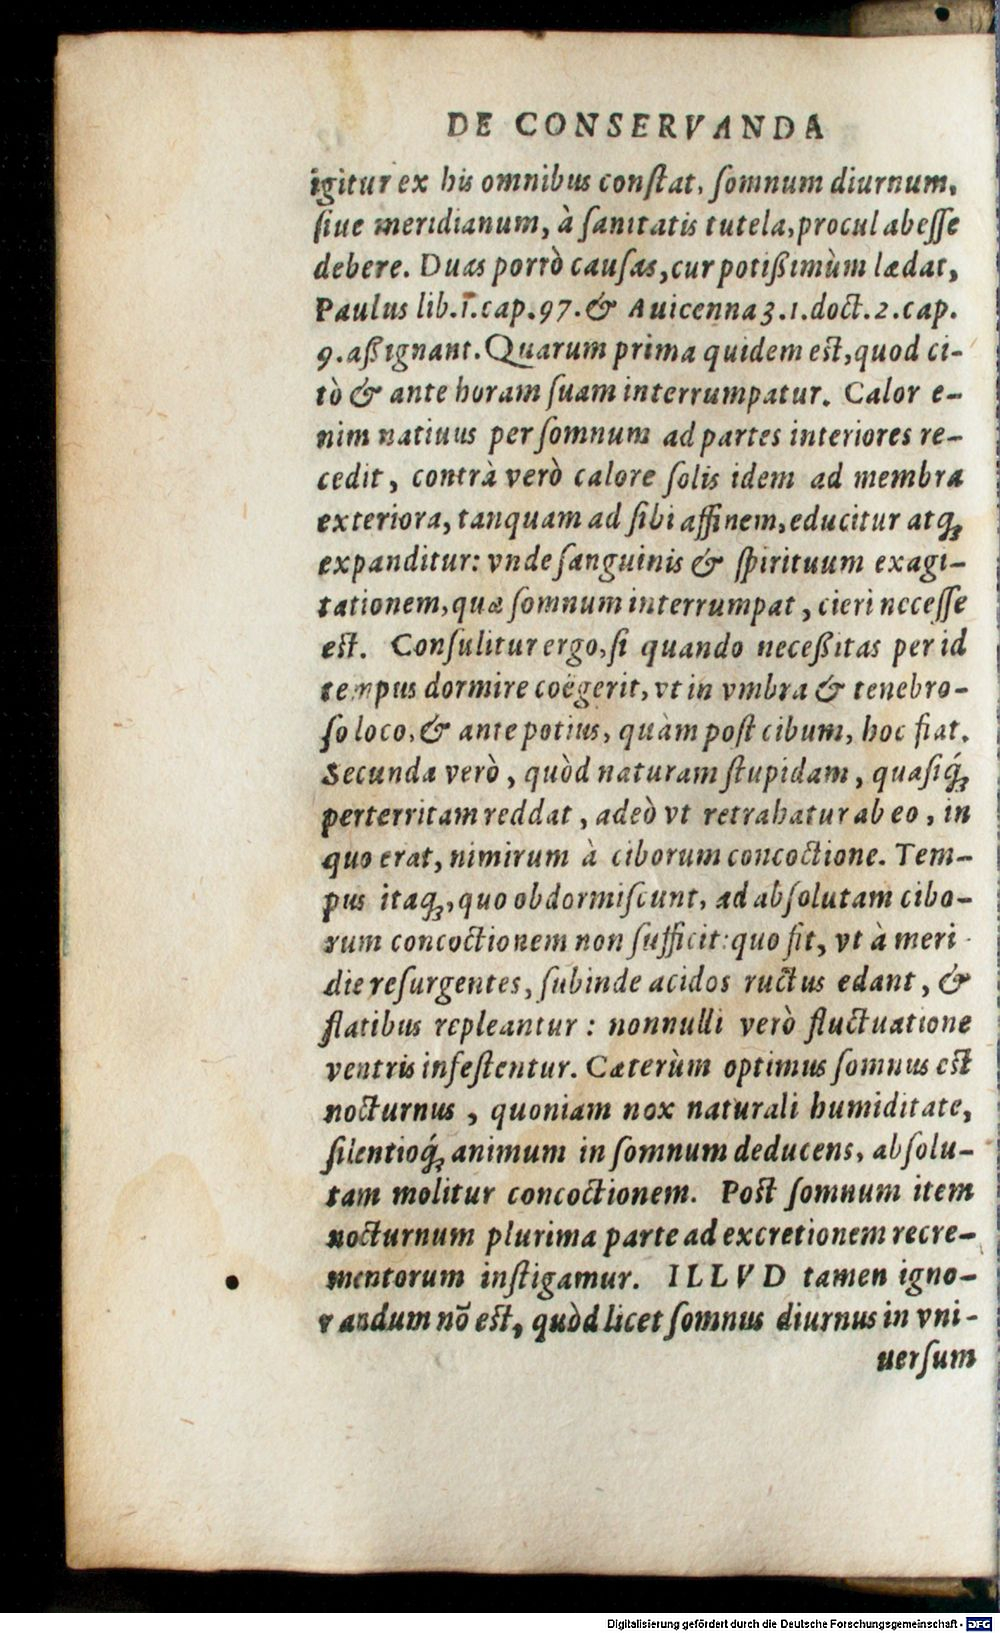 DE CONSERVANDA
igitur ex his omnibus conſtat, ſomnum diurnum,
ſiue meridianum, à ſanitatis tutela, procul abeſſe
debere. Duas porrò cauſas, cur potißimùm lædat,
Paulus lib.1.cap.97.& Auicenna 3.1.doct.2.cap.
9.aßignant. Quarum prima quidem est, quod ci-
tò & ante horam ſuam interrumpatur. Calor e-
nim natiuus per ſomnum ad partes interiores re-
cedit, contrà verò calore ſolis idem ad membra
exteriora, tanquam ad ſibi affinem, educitur atq;
expanditur: vnde ſanguinis & ſpirituum exagi-
tationem, quæ ſomnum interrumpat, cieri neceſſe
est. Conſulitur ergo, ſi quando neceßitas per id
tempus dormire coëgerit, vt in vmbra & tenebro-
ſo loco, & ante potius, quàm poſt cibum, hoc fiat.
Secunda verò, quòd naturam ſtupidam, quaſiq́;
perterritam reddat, adeò vt retrahatur ab eo, in
quo erat, nimirum à ciborum concoctione. Tem-
pus itaq;, quo obdormiſcunt, ad abſolutam cibo-
rum concoctionem non ſufficit: quo fit, vt à meri-
die reſurgentes, ſubinde acidos ructus edant, &
flatibus repleantur: nonnulli verò fluctuatione
ventris infeſtentur. Cæterùm optimus ſomnus est
nocturnus, quoniam nox naturali humiditate,
ſilentioq́; animum in ſomnum deducens, abſolu-
tam molitur concoctionem. Post ſomnum item
nocturnum plurima parte ad excretionem recre-
mentorum inſtigamur. ILLVD tamen igno-
randum nō est, quòd licet ſomnus diurnus in vni-
uerſum
Digitalisierung gefördert durch die Deutsche Forschungsgemeinschaft - DFG